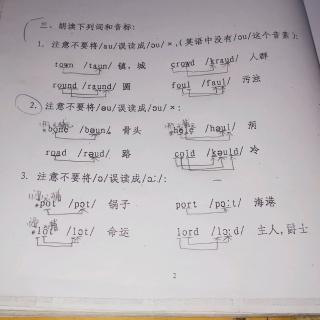 三、朗读下列词和音标:
1. 注意不要将/au/误读成/ɔu/×,(英语中没有/ɔu/这个音素):
town /taun/ 镇,城 crowd /kraud/ 人群
round /raund/ 圆 foul /faul/ 污浊
2. 注意不要将/əu/误读成/ɔu/×:
bone /bəun/ 骨头 hole /həul/ 洞
road /rəud/ 路 cold /kəuld/ 冷
3. 注意不要将/ɔ/误读成/ɔ:/:
pot /pɔt/ 锅子 port /pɔ:t/ 海港
lot /lɔt/ 命运 lord /lɔ:d/ 主人,爵士
2